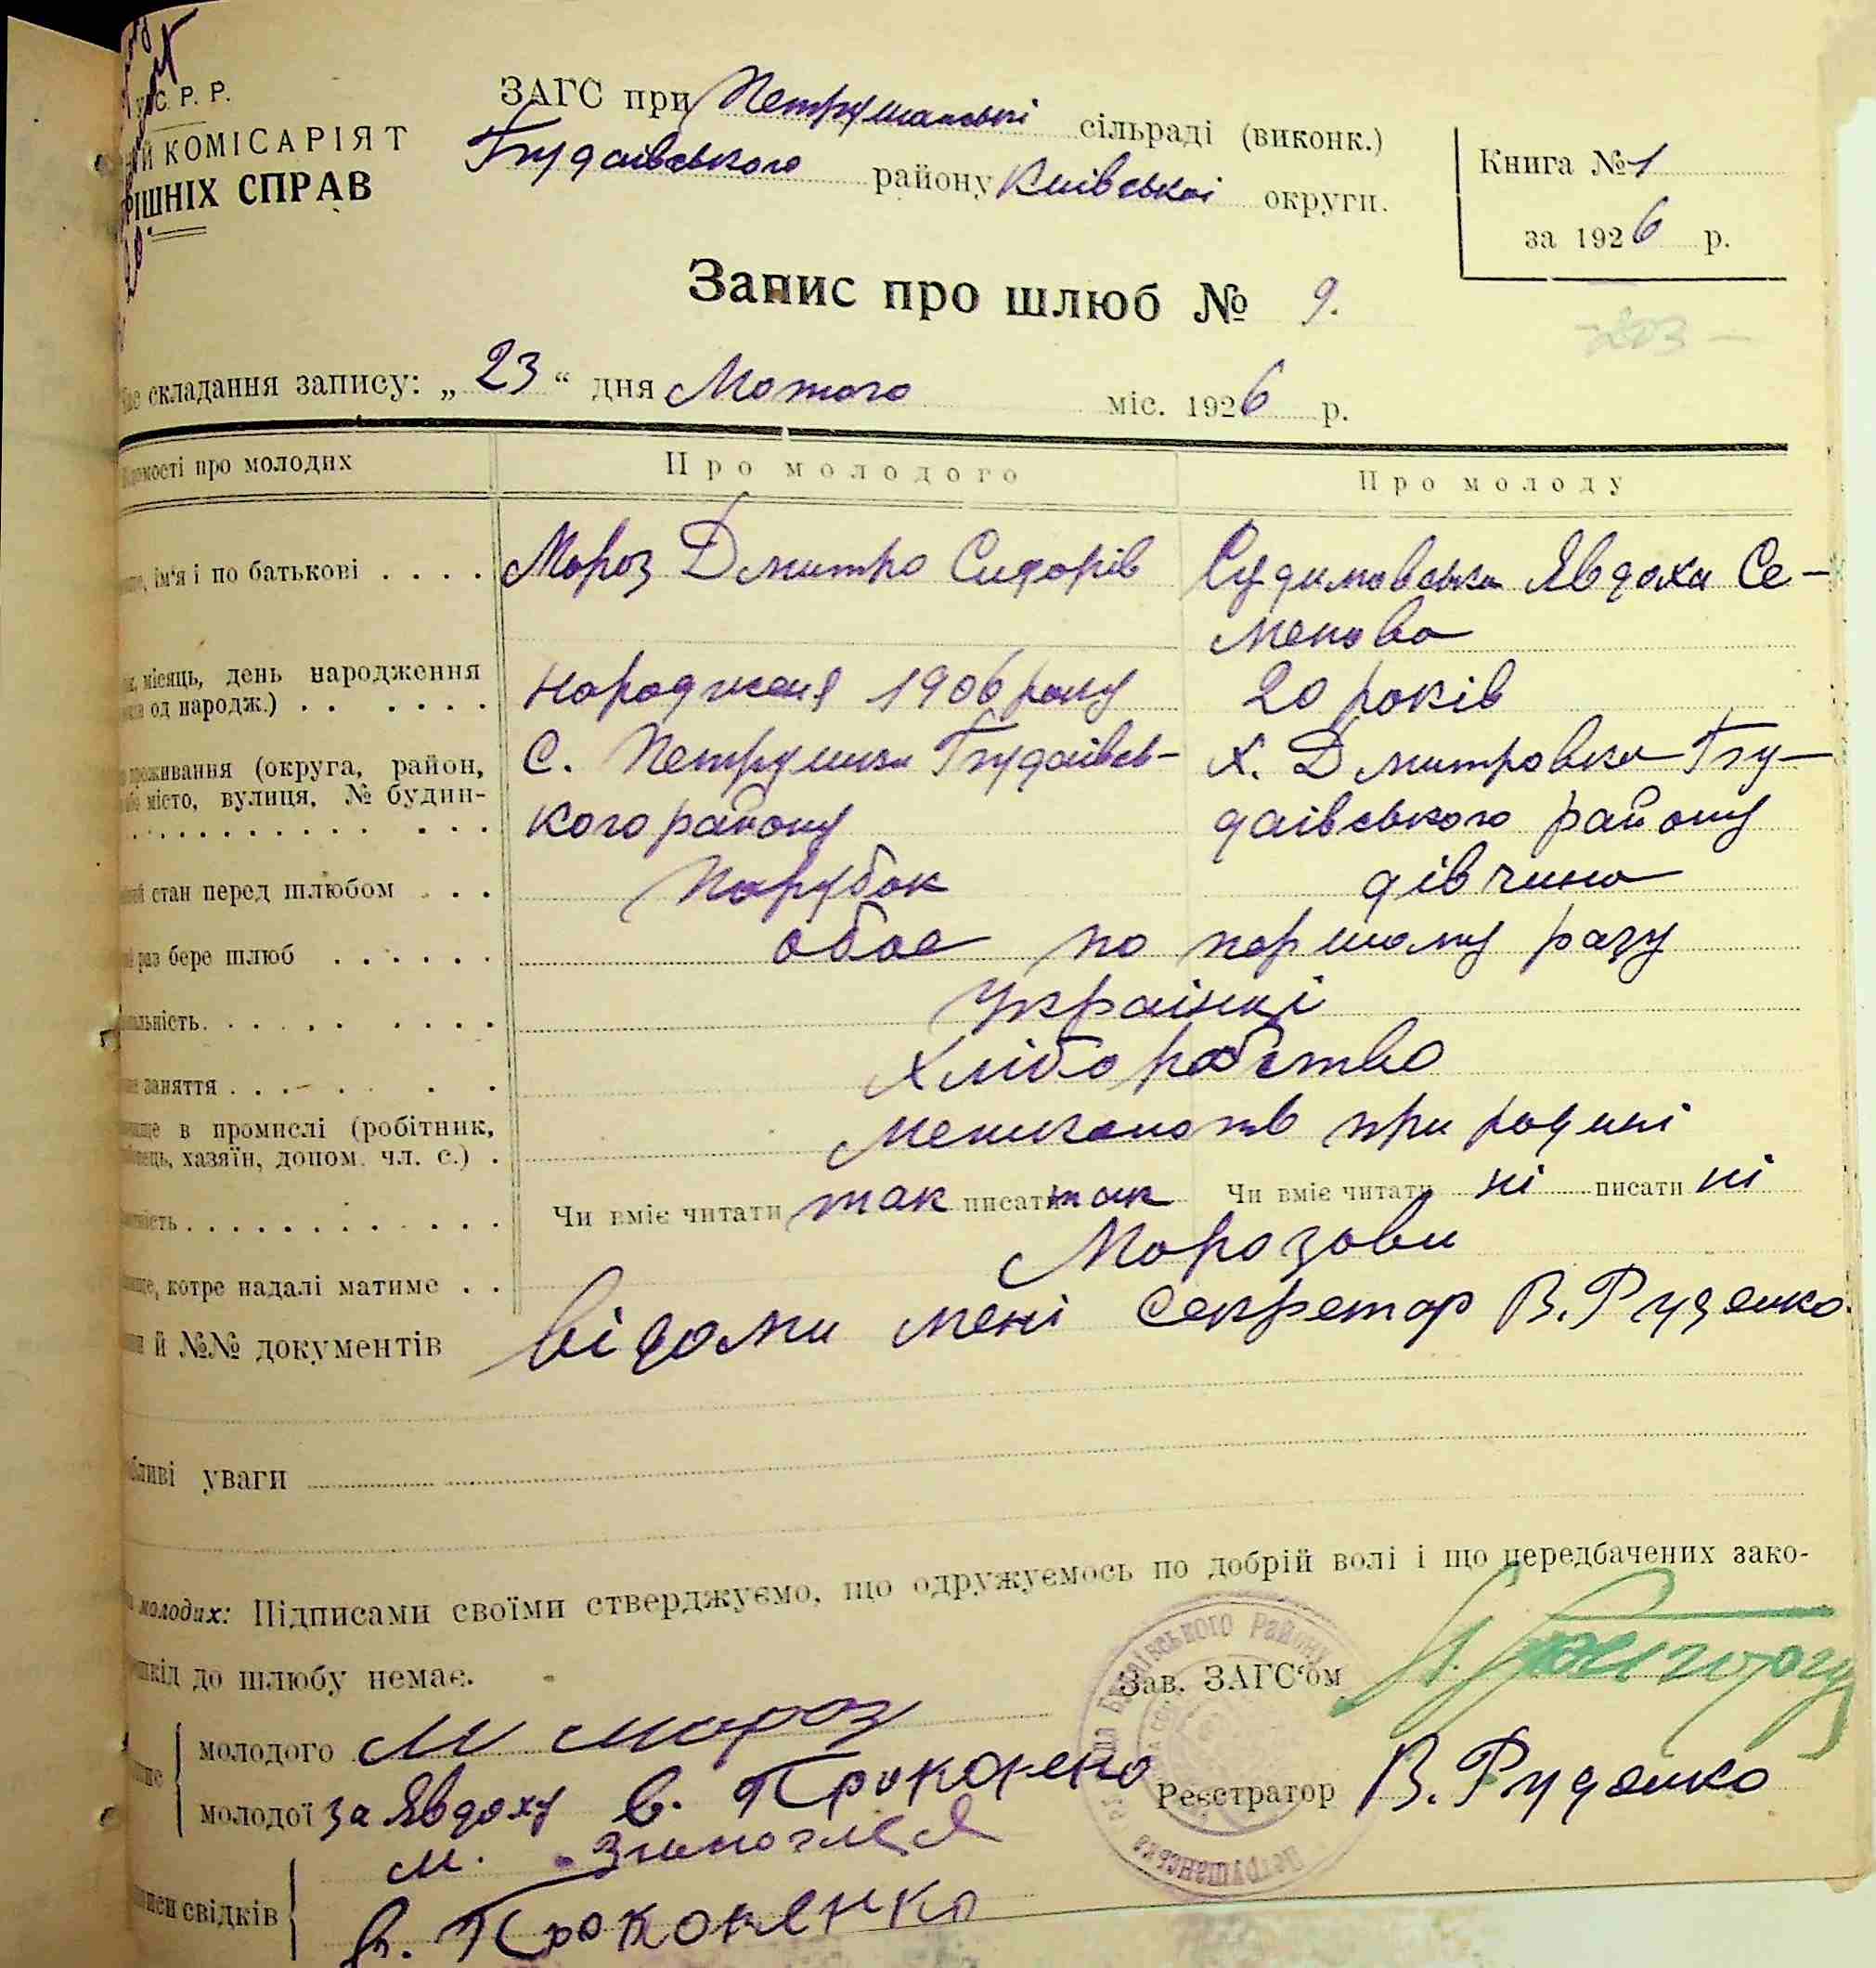 У.С.Р.Р.
КОМІСАРІЯТ
СПРАВ
ЗАГС при Петрушанській сільраді (виконк.)
Будаївського району Київської округи.
Книга № 1
за 1926 р.
Запис про шлюб № 9.
203
складання запису: „ 23 “ дня Лютого міс. 1926 р.
про молодих
Про молодого
Про молоду
ім'я і по батькові . . . .
Мороз Дмитро Сидорів
Судимовська Явдоха Се-
менова
місяць, день народження
од народж.) . . . . . .
Народженя 1906 року
20 років
проживання (округа, район,
місто, вулиця, № будин-
С. Петрушки Будаівсь-
кого району
Х. Дмитровка Бу-
даівського району
стан перед шлюбом . . .
Парубок
дівчина
раз бере шлюб . . . . . .
обое по першому разу
Украінці
заняття . . . .
Хліборобство
в промислі (робітник,
хазяїн, допом. чл. с.) .
при родині
Чи вміє читати так писати так
Чи вміє читати ні писати ні
котре надалі матиме . .
Морозови
й №№ документів
Відоми мені Секретар В. Руденко.
уваги
молодих: Підписами своїми стверджуємо, що одружуємось по добрій волі і що передбачених зако-
до шлюбу немає.
Зав. ЗАГС'ом
молодого Мороз
молодої за Явдоху В. Прокопенко
Реєстратор В. Руденко
свідків
В. Прокопенко
Будаївського Району
Петрушанська